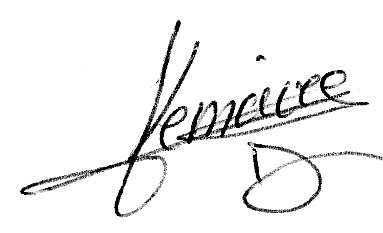 Lemaire
D